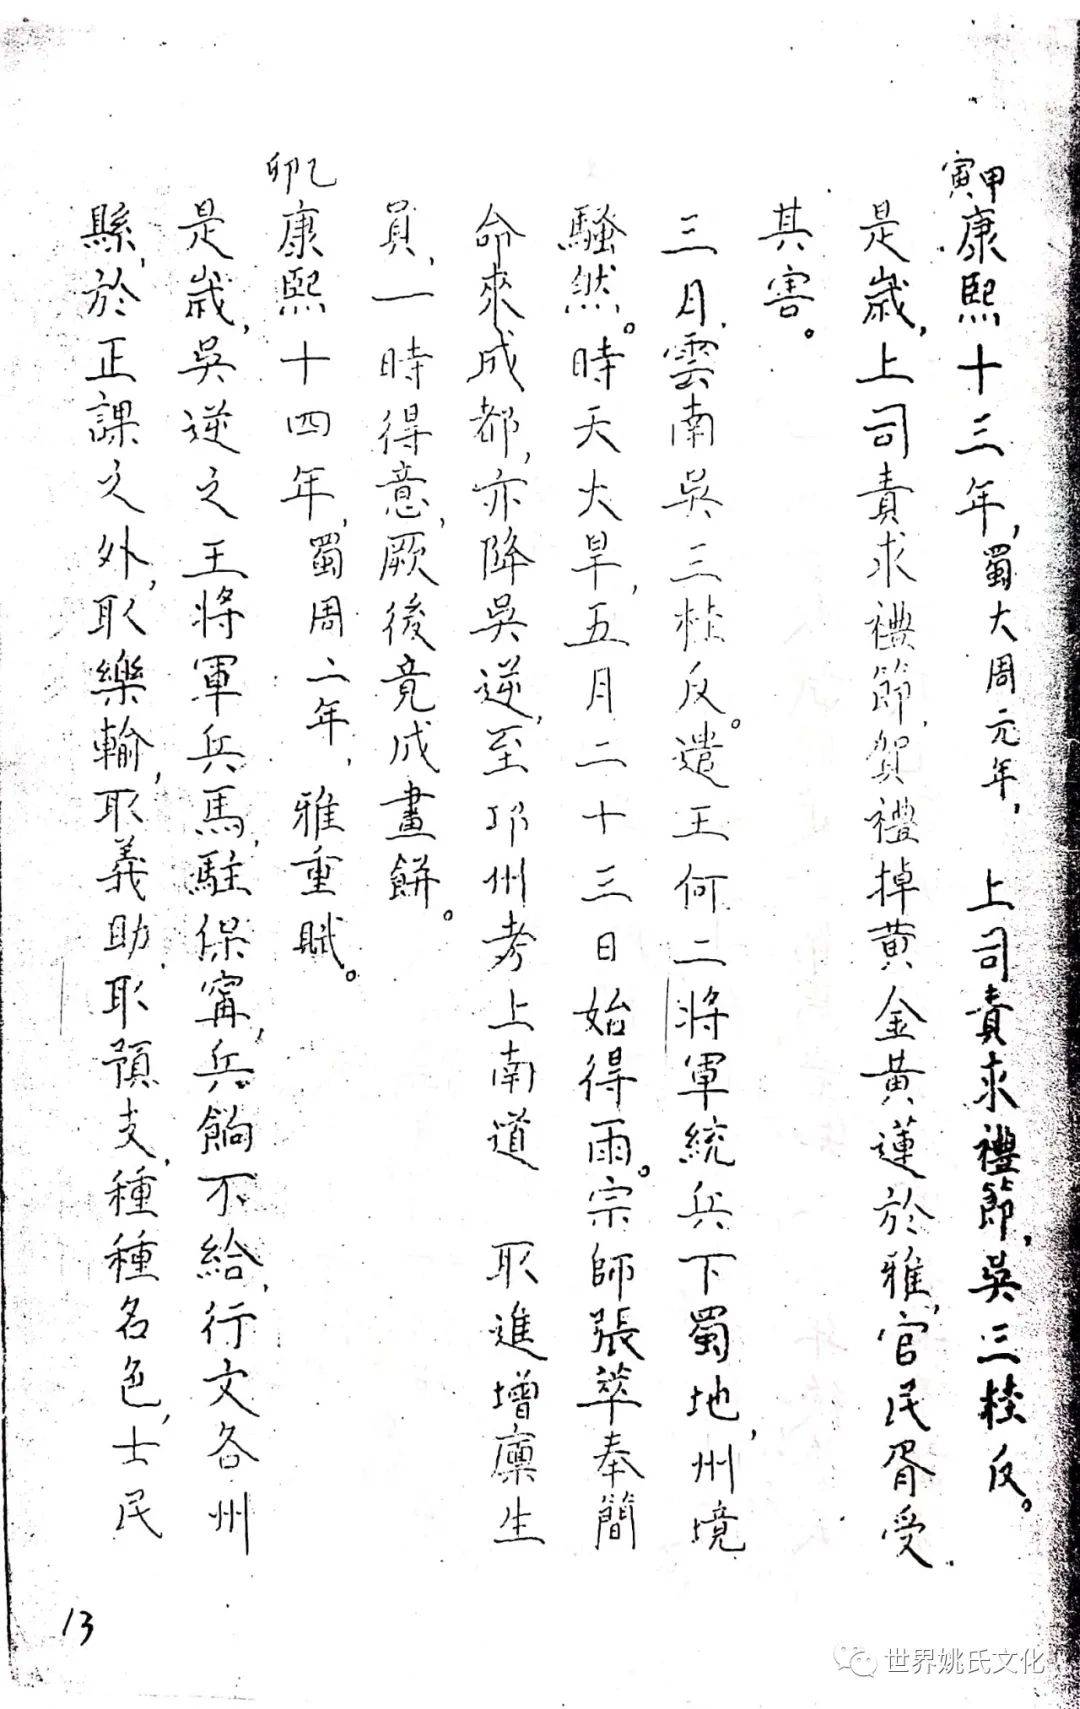 甲寅康熙十三年，蜀大周元年，上司責求禮節，吳三桂反。
是歲，上司責求禮節，賀禮掉黃金黃蓮於雅，官民胥受
其害。
三月，雲南吳三桂反。遣王何二將軍統兵下蜀地，州境
騷然。時天大旱，五月二十三日始得雨。宗師張萃奉簡
命來成都，亦降吳逆，至邛州考上南道 取進增廩生
員，一時得意，厥後竟成畫餅。
乙卯康熙十四年，蜀周二年，雅重賦。
是歲，吳逆之王將軍兵馬，駐保甯，兵餉不給，行文各州
縣，於正課之外，取樂輸，取義助，取預支，種種名色，士民
13
世界姚氏文化